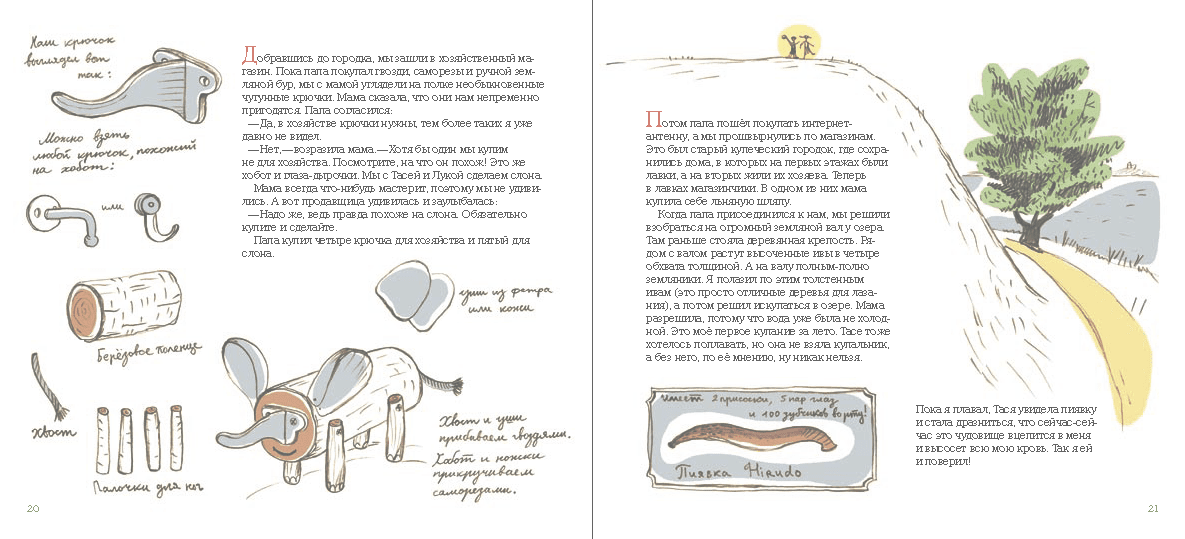 Наш крючок
выглядел вот
так:
Можно взять
любой крючок, похожий
на хобот:
или
Берёзовое полено
Хвост
Палочки для ног
уши из фетра
или кожи
Хвост и уши
прибиваем гвоздями.
Хобот и ножки
прикручиваем
саморезами.
Добравшись до городка, мы зашли в хозяйственный ма-
газин. Пока папа покупал гвозди, саморезы и ручной зем-
ляной бур, мы с мамой углядели на полке необыкновенные
чугунные крючки. Мама сказала, что они нам непременно
пригодятся. Папа согласился:
—Да, в хозяйстве крючки нужны, тем более таких я уже
давно не видел.
—Нет,—возразила мама.—Хотя бы один мы купим
не для хозяйства. Посмотрите, на что он похож! Это же
хобот и глаза-дырочки. Мы с Тасей и Лукой сделаем слона.
Мама всегда что-нибудь мастерит, поэтому мы не удиви-
лись. А вот продавщица удивилась и заулыбалась:
—Надо же, ведь правда похоже на слона. Обязательно
купите и сделайте.
Папа купил четыре крючка для хозяйства и пятый для
слона.
20
Потом папа пошёл покупать интернет-
антенну, а мы прошвырнулись по магазинам.
Это был старый купеческий городок, где сохра-
нились дома, в которых на первых этажах были
лавки, а на вторых жили их хозяева. Теперь
в лавках магазинчики. В одном из них мама
купила себе льняную шляпу.
Когда папа присоединился к нам, мы решили
взобраться на огромный земляной вал у озера.
Там раньше стояла деревянная крепость. Ря-
дом с валом растут высоченные ивы в четыре
обхвата толщиной. А на валу полным-полно
земляники. Я полазил по этим толстенным
ивам (это просто отличные деревья для лаза-
ния), а потом решил искупаться в озере. Мама
разрешила, потому что вода уже была не холод-
ной. Это моё первое купание за лето. Тасе тоже
хотелось поплавать, но она не взяла купальник,
а без него, по её мнению, ну никак нельзя.
имеет 2 присоски, 5 пар глаз
и 100 зубчиков во рту!
Пиявка Hirudo
Пока я плавал, Тася увидела пиявку
и стала дразниться, что сейчас-сей-
час это чудовище вцепится в меня
и высосет всю мою кровь. Так я ей
и поверил!
21